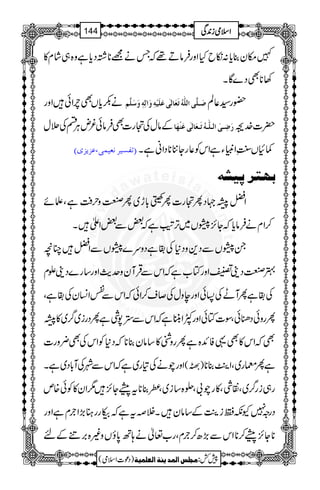 اسلامی زندگی 144
کا نکاح نہ اپنا مکان بنایا کہیں اور ایک فرماتے تھے کہ جس نے مجھے ناشتہ دیا ہے وہ ہی شام کا
کھانا بھی دے گا۔
حضور سیدِ عالم صَلَّی اللّٰہُ تَعَالٰی عَلَیْہِ وَاٰلِہٖ وَسَلَّم نے بکریاں بھی چرائی ہیں اور
حضرت خدیجہ رَضِیَ اللّٰہُ تَعَالٰی عَنْہَا کے مال کی تجارت بھی فرمائی غرض ہر قسم کی حلال
کمائیاں سنتِ انبیاء ہے اس کو عار جاننا نادانی ہے۔ (تفسیر نعیمی، عزیزی)
بہتر پیشہ
افضل پیشہ جہاد پھر تجارت پھر کھیتی باڑی پھر صنعت و حرفت ہے، علمائے
کرام نے فرمایا کہ جائز پیشوں میں ترتیب ہے کہ بعض سے بعض اعلیٰ ہیں۔
جن پیشوں سے دین و دنیا کی بقا ہے دوسرے پیشوں سے افضل ہیں چنانچہ
بہتر صنعت دینی تصنیف اور کتابت ہے کہ اس سے قرآن و حدیث اور سارے دینی علوم
کی بقا ہے پھر آٹے کی پسائی اور چاول کی صاف کرائی کہ اس سے نفسِ انسان کی بقا ہے،
پھر روئی دھنائی، سوت کتائی اور کپڑا بننا ہے کہ اس سے ستر پوشی ہے پھر درزی گری کا پیشہ
بھی کہ اس کا بھی یہی فائدہ ہے پھر روشنی کا سامان بنانا کہ دنیا کو اس کی بھی ضرورت
ہے پھر معماری، اینٹ بنانا (بھٹہ) اور چونے کی تیاری ہے کہ اس سے شہر کی آبادی ہے۔
رہی زرگری، نقاشی، کارچوبی، حلوہ سازی، عطر بنانا یہ پیشے جائز ہیں مگر ان کا کوئی خاص
درجہ نہیں کیونکہ فقط زینت کے سامان ہیں۔ خلاصہ یہ ہے کہ بیکار رہنا بڑا جرم ہے اور
ناجائز پیشے کرنا اس سے بڑھ کر جرم، رب تعالیٰ نے ہاتھ پاؤں وغیرہ برتنے کے لئے
پیش کش: مجلس المدینۃ العلمیۃ (دعوت اسلامی)